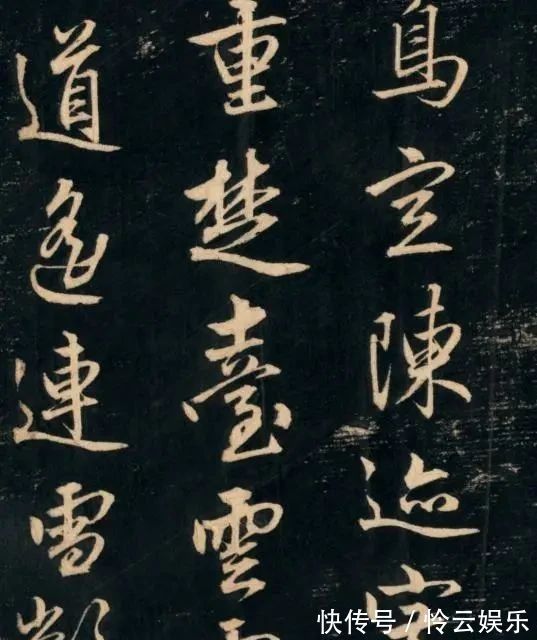 鳥空陳迹
重楚臺雲
道遙連雪
快传号 / 怜云娱乐